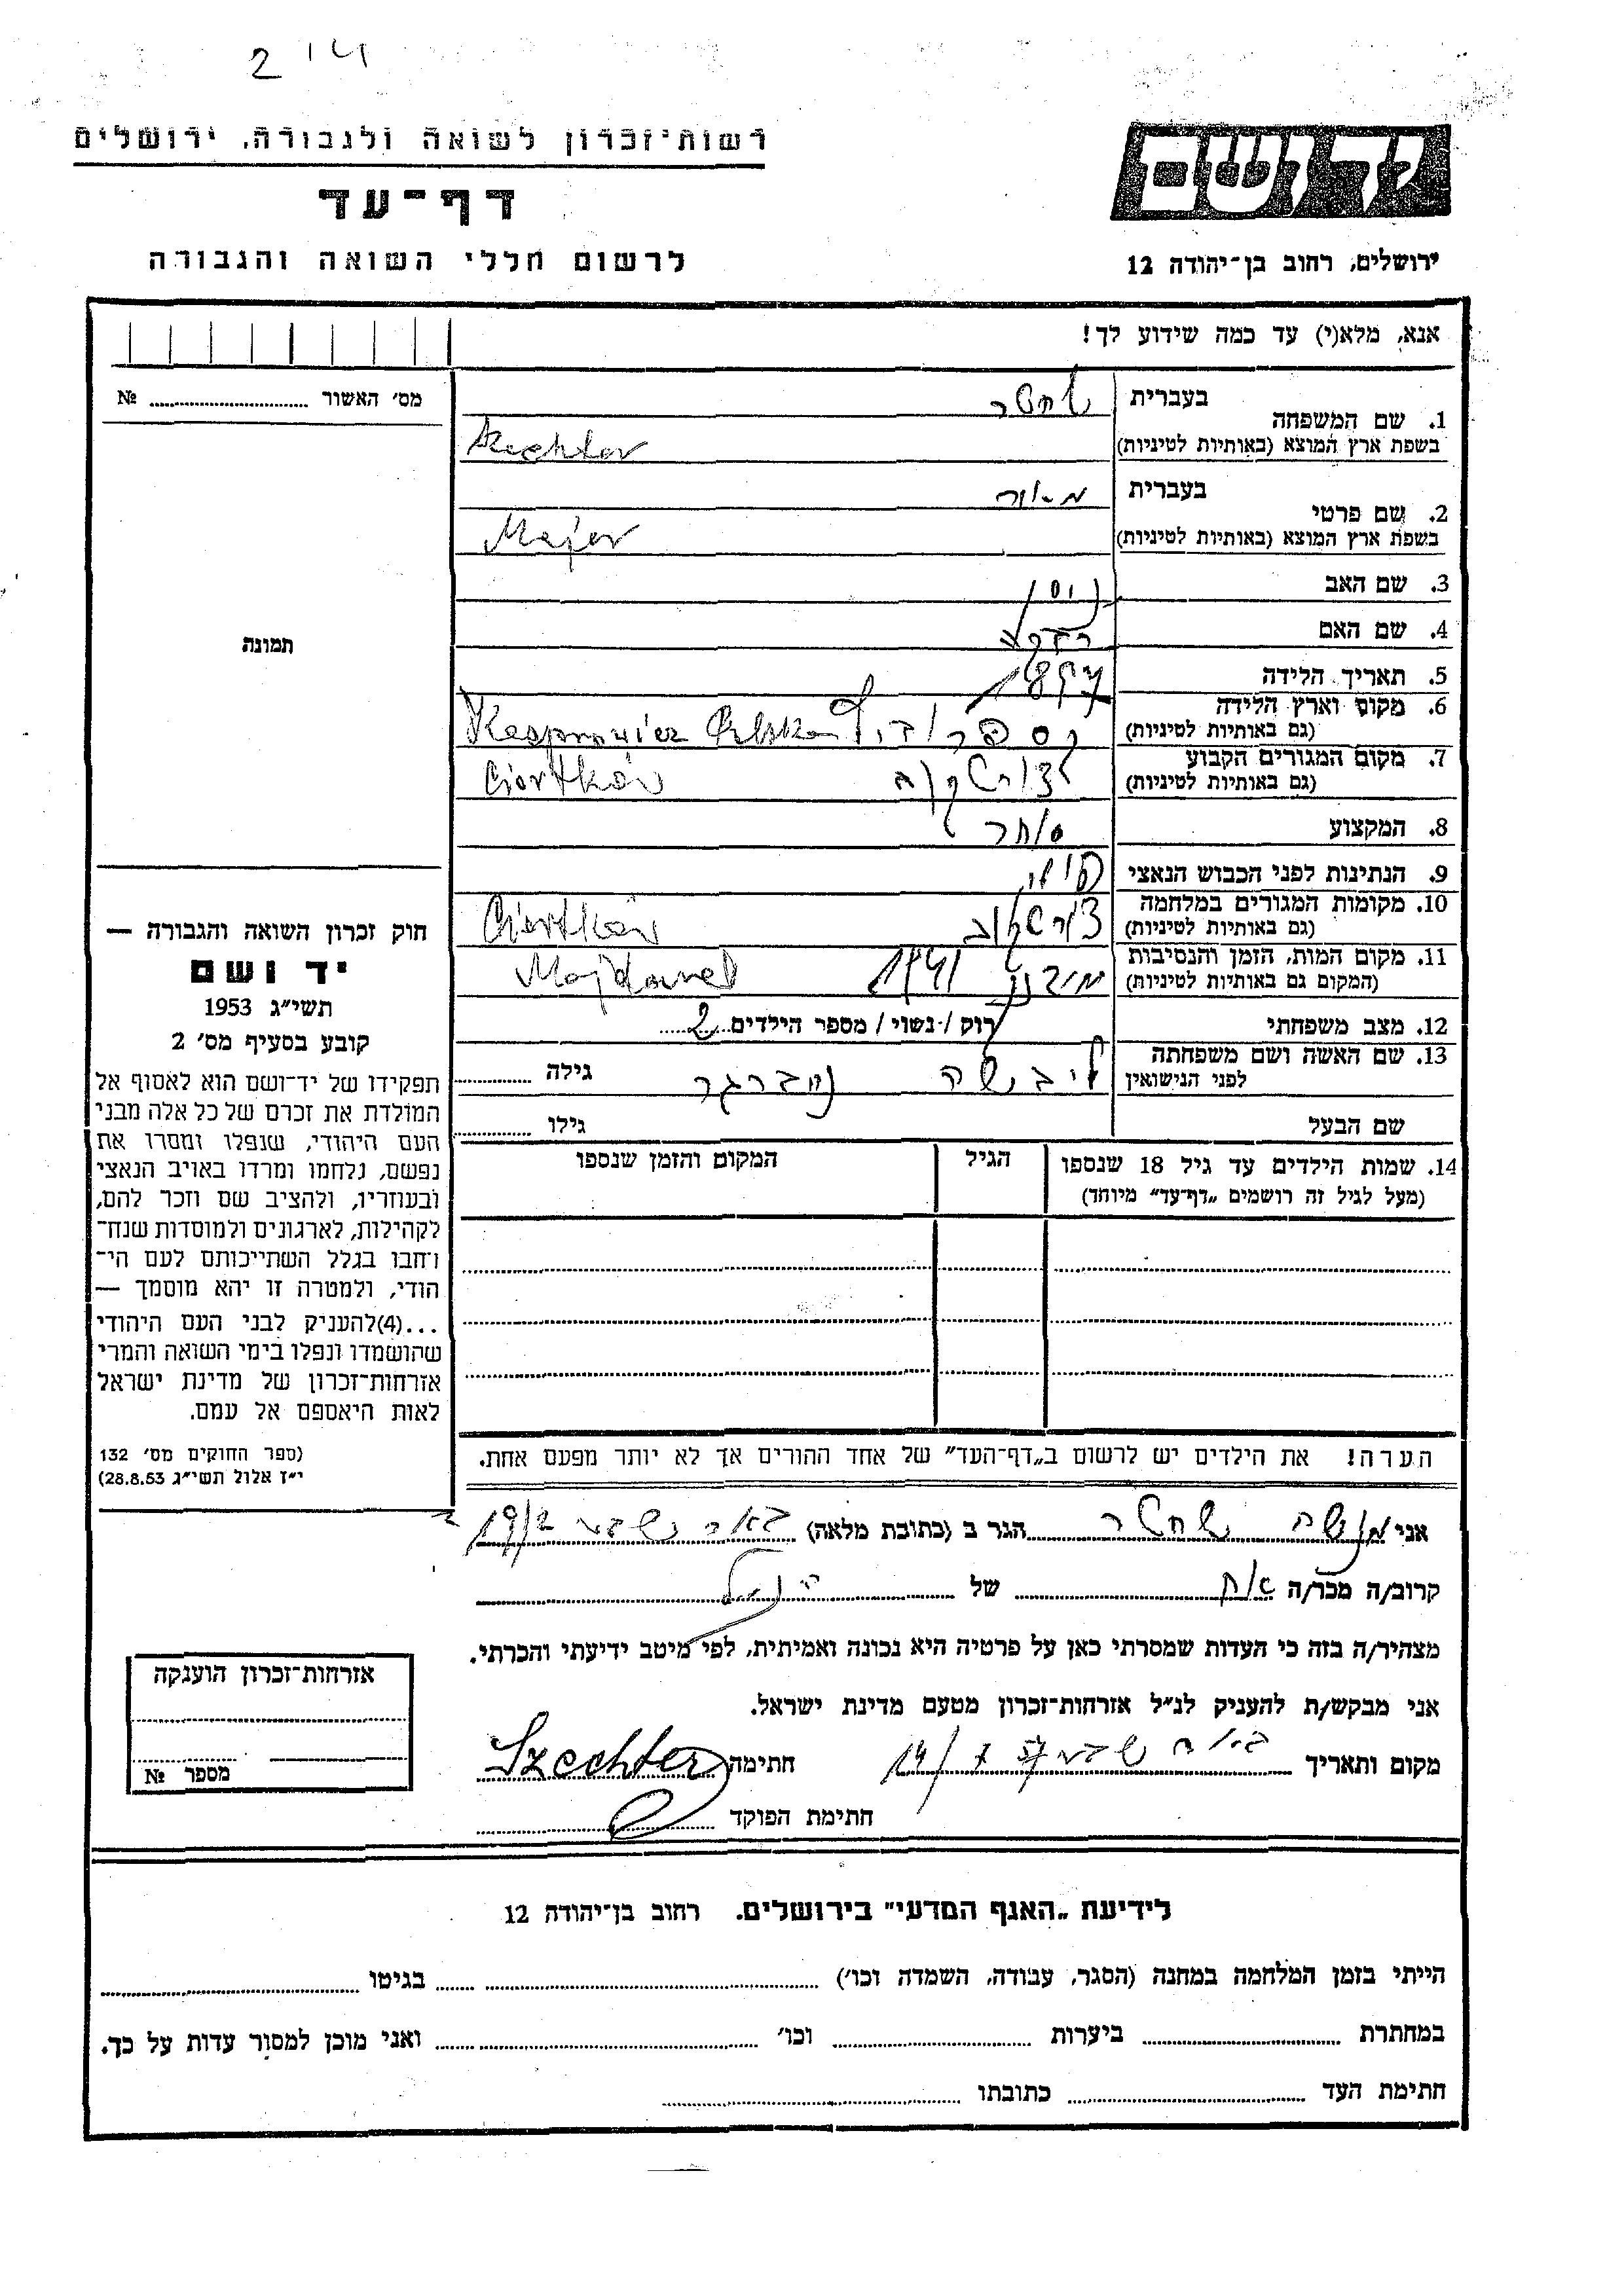 רשות־זכרון לשואה ולגבורה, ירושלים
יד ושם
דף־עד
לרשום חללי השואה והגבורה
ירושלים, רחוב בן־יהודה 12
אנא, מלא(י) עד כמה שידוע לך!
מס׳ האשור ........ №
1. שם המשפחה
בעברית שחטר
בשפת ארץ המוצא (באותיות לטיניות) Szechter
2. שם פרטי
בעברית מאור
בשפת ארץ המוצא (באותיות לטיניות) Major
3. שם האב ניסן
4. שם האם רבקה
5. תאריך הלידה 1897
6. מקום וארץ הלידה
(גם באותיות לטיניות)
7. מקום המגורים הקבוע צ׳ורטקוב Ciortków
(גם באותיות לטיניות)
8. המקצוע סוחר
9. הנתינות לפני הכבוש הנאצי
10. מקומות המגורים במלחמה צ׳ורטקוב Ciortków
(גם באותיות לטיניות)
11. מקום המות, הזמן והנסיבות 1941 Majdanek
(המקום גם באותיות לטיניות)
12. מצב משפחתי רווק / נשוי / מספר הילדים 2
13. שם האשה ושם משפחתה
לפני הנישואין גילה
שם הבעל גילו
14. שמות הילדים עד גיל 18 שנספו
(מעל לגיל זה רושמים „דף־עד” מיוחד)
הגיל
המקום והזמן שנספו
תמונה
חוק זכרון השואה והגבורה —
יד ושם
תשי״ג 1953
קובע בסעיף מס׳ 2
תפקידו של יד־ושם הוא לאסוף אל
המולדת את זכרם של כל אלה מבני
העם היהודי, שנפלו ומסרו את
נפשם, נלחמו ומרדו באויב הנאצי
ובעוזריו, ולהציב שם וזכר להם,
לקהילות, לארגונים ולמוסדות שנח־
רבו בגלל השתייכותם לעם הי־
הודי, ולמטרה זו יהא מוסמך —
...(4) להעניק לבני העם היהודי
שהושמדו ונפלו בימי השואה והמרי
אזרחות־זכרון של מדינת ישראל
לאות היאספם אל עמם.
(ספר החוקים מס׳ 132
י״ז אלול תשי״ג 28.8.53)
הערה! את הילדים יש לרשום ב„דף־העד” של אחד ההורים אך לא יותר מפעם אחת.
אני מנשה שחטר הגר ב (כתובת מלאה) באר שבע
קרוב/ה מכר/ה אח של
מצהיר/ה בזה כי העדות שמסרתי כאן על פרטיה היא נכונה ואמיתית, לפי מיטב ידיעתי והכרתי.
אני מבקש/ת להעניק לנ״ל אזרחות־זכרון מטעם מדינת ישראל.
מקום ותאריך באר שבע חתימה Szechter
חתימת הפוקד
אזרחות־זכרון הוענקה
מספר №
לידיעת „האגף המדעי” בירושלים. רחוב בן־יהודה 12
הייתי בזמן המלחמה במחנה (הסגר, עבודה, השמדה וכו׳) ........ בגיטו ........
במחתרת ........ ביערות ........ וכו׳ ........ ואני מוכן למסור עדות על כך.
חתימת העד ........ כתובתו ........